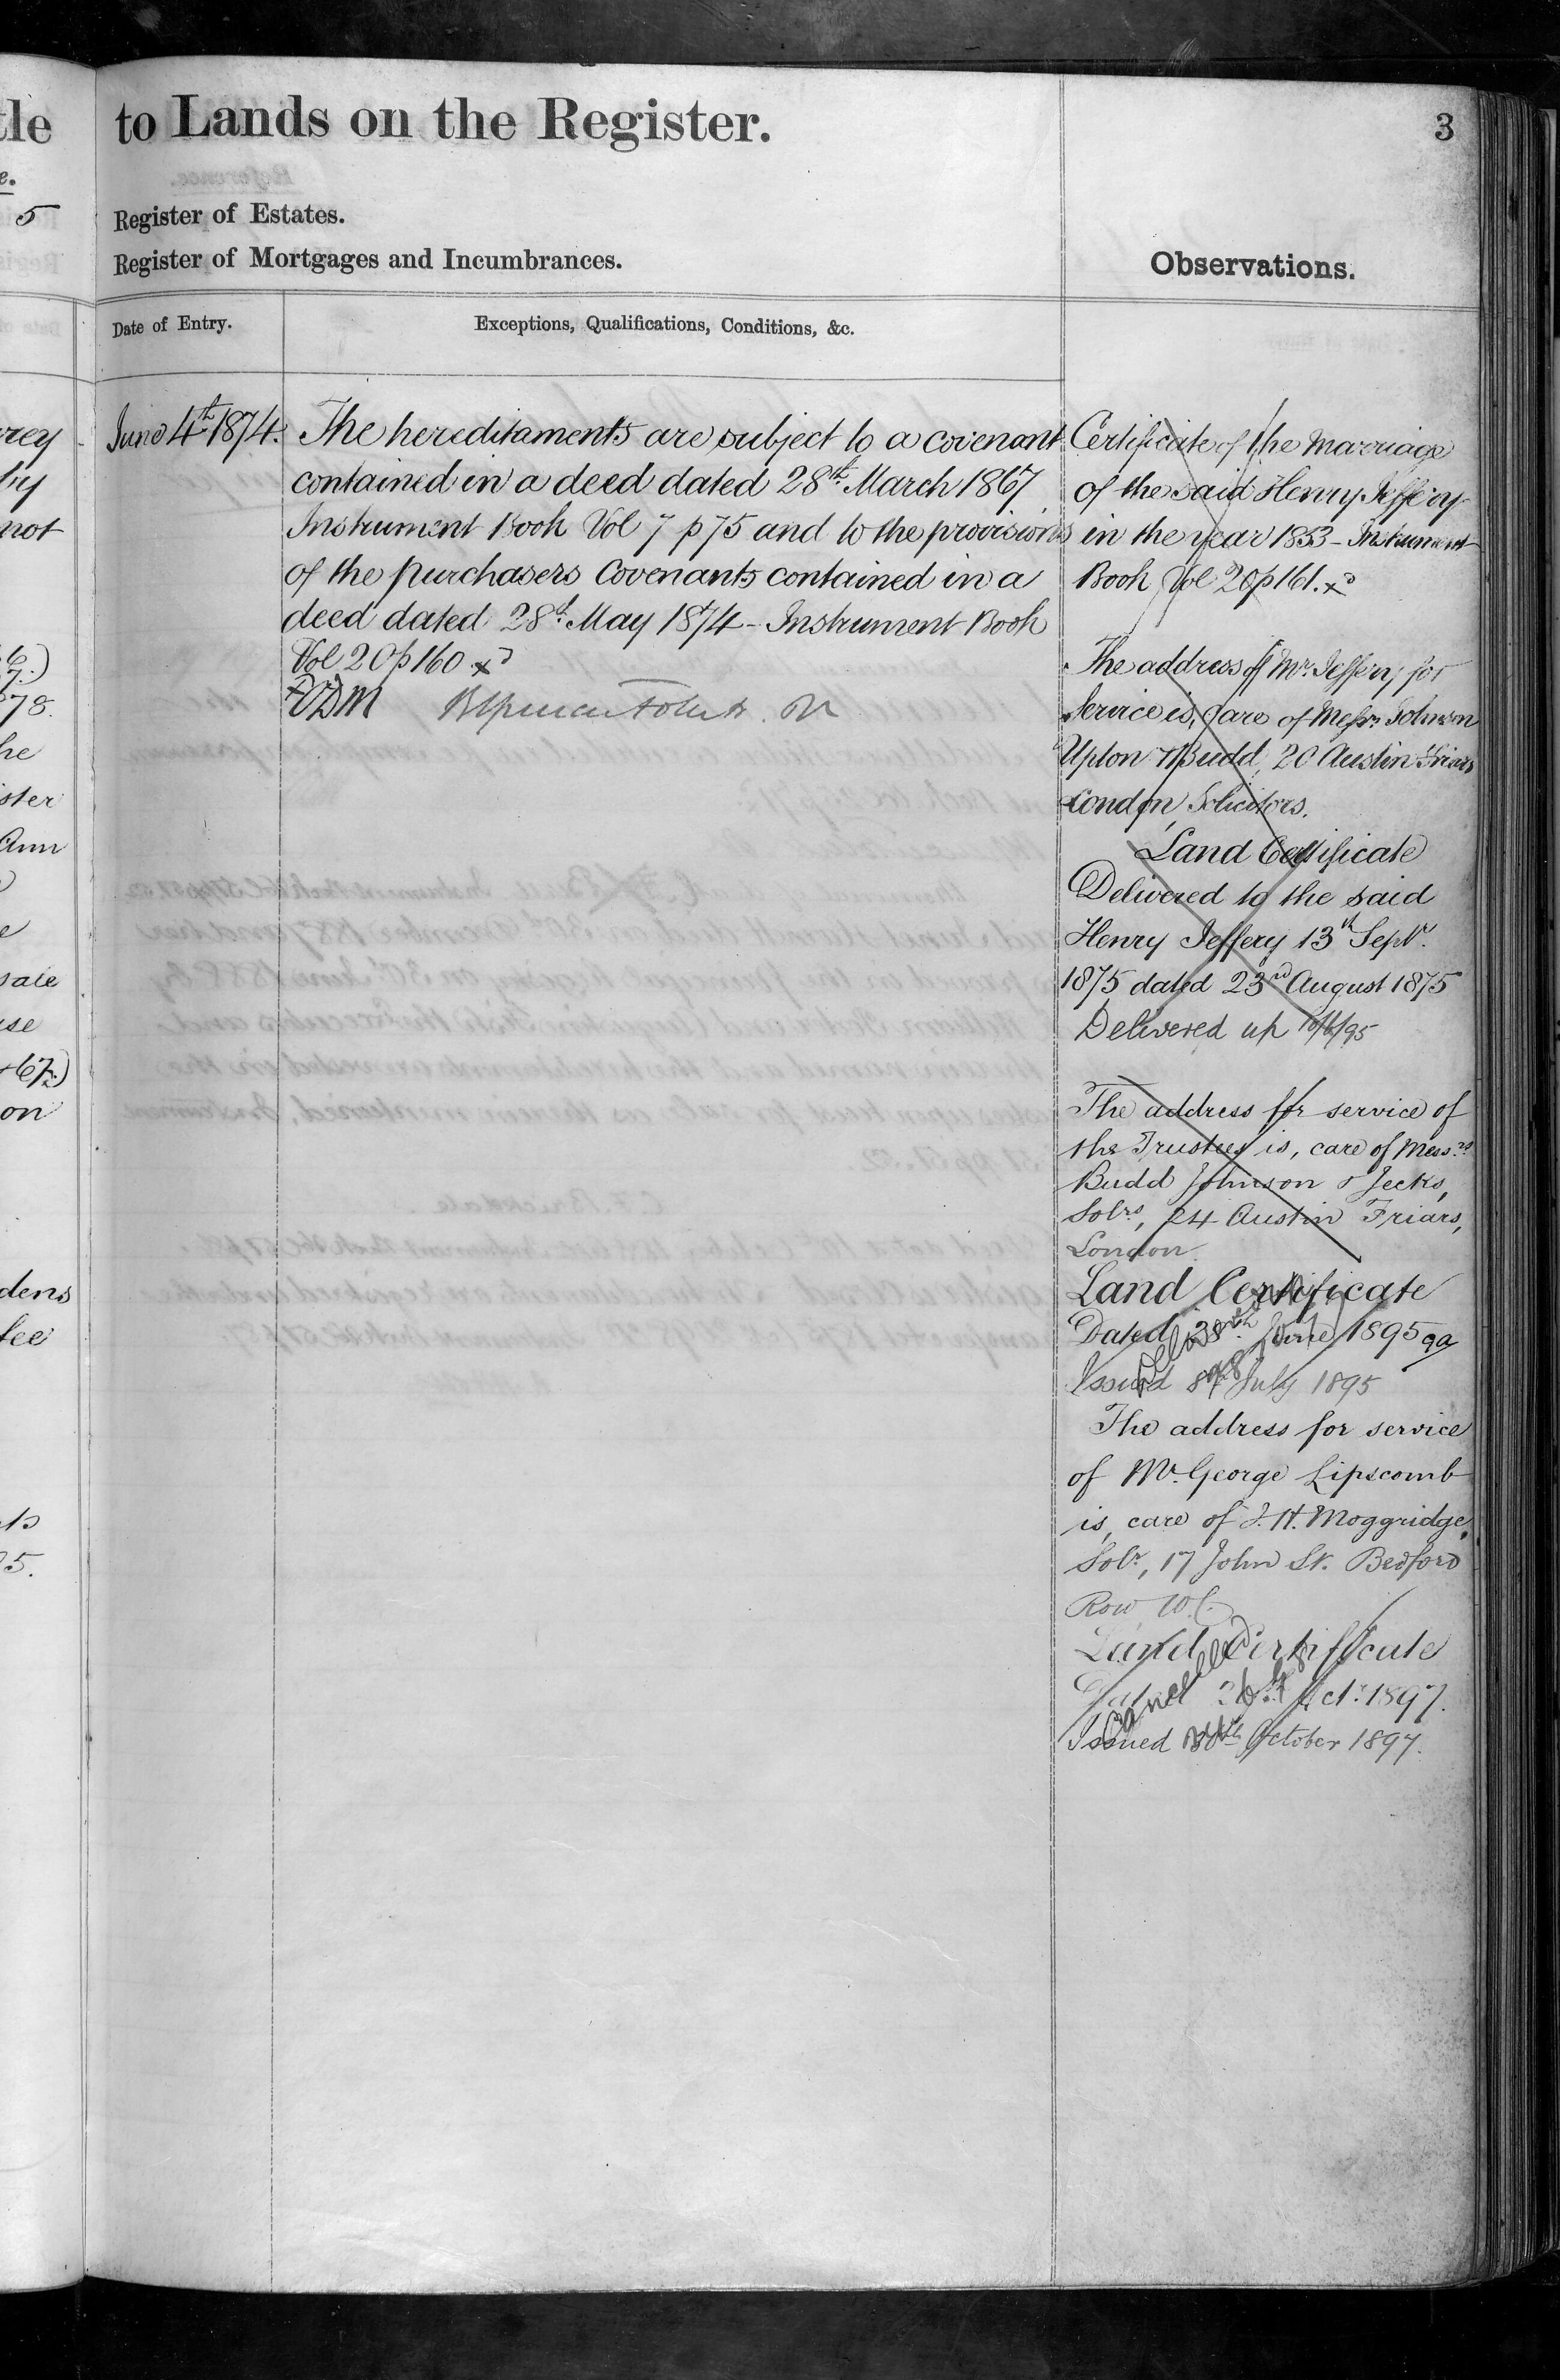 to Lands on the Register.
3
Register of Estates.
Register of Mortgages and Incumbrances.
Observations.
Date of Entry.
Exceptions, Qualifications, Conditions, &c.
June 4th 1874.
The hereditaments are subject to a covenant
contained in a deed dated 28th March 1867
Instrument Book Vol 7 p 75 and to the provisions
of the purchasers Covenants contained in a
deed dated 28th May 1874 - Instrument Book
Vol 20 p 160
Certificate of the Marriage
of the said Henry Jeffery
in the year 1853 - Instrument
Book Vol 20 p 161.
The address of Mr Jeffery for
Service is, care of Messrs Johnson
Upton & Budd, 20 Austin Friars
London, Solicitors.
Land Certificate
Delivered to the said
Henry Jeffery 13th Septr.
1875 dated 23rd August 1875
Delivered up
The address for service of
the Trustees is, care of Messrs
Budd Johnson & Jecks,
Solrs, 24 Austin Friars,
London.
Land Certificate
Dated 28th June 1895
Issued 8th July 1895
The address for service
of Mr. George Lipscomb
is, care of J. H. Moggridge,
Solr, 17 John St. Bedford
Row W.C.
Land Certificate
Cancelled
26th Octr. 1897.
Issued October 1897.